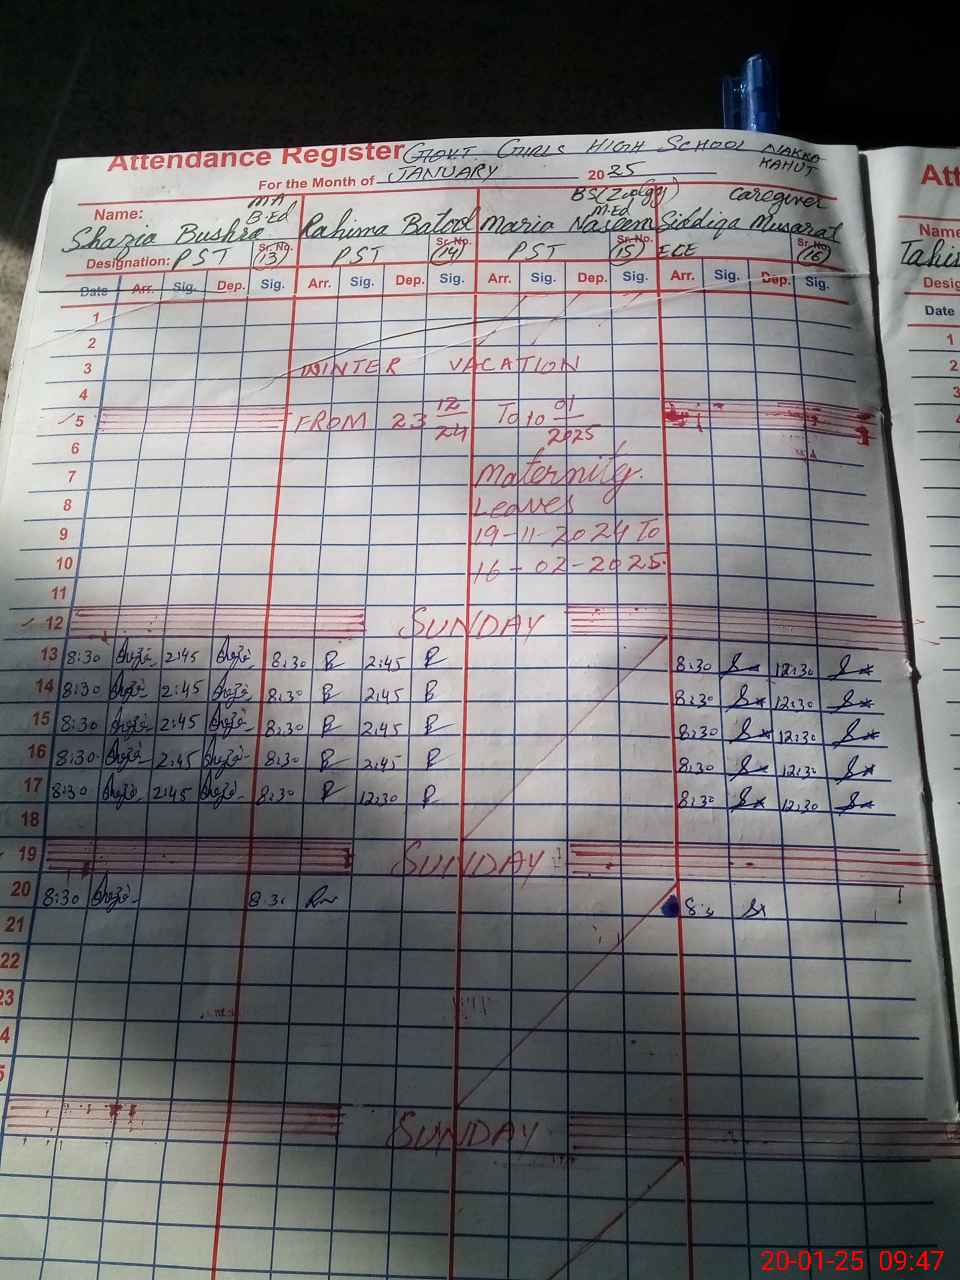 Attendance Register GOVT. GIRLS HIGH SCHOOL NAKKA KAHUT
For the Month of JANUARY 2025
MA B.Ed BS(Zoology) M.Ed Caregiver
Name: Shazia Bushra Rahima Batool Maria Naseem Siddiqa Musarat
Designation: PST Sr. No. (13) PST Sr. No. (14) PST Sr. No. (15) ECE Sr. No. (16)
Date Arr. Sig. Dep. Sig. Arr. Sig. Dep. Sig. Arr. Sig. Dep. Sig. Arr. Sig. Dep. Sig.
1
2
3 WINTER VACATION
4
5 FROM 23 12/24 To 10 01/2025
6
7 Maternity
8 Leaves
9 19-11-2024 To
10 16-02-2025.
11
12 SUNDAY
13 8:30 2:45 8:30 R 2:45 R 8:30 12:30
14 8:30 2:45 8:30 R 2:45 R 8:30 12:30
15 8:30 2:45 8:30 R 2:45 R 8:30 12:30
16 8:30 2:45 8:30 R 2:45 R 8:30 12:30
17 8:30 2:45 8:30 R 12:30 R 8:30 12:30
18
19 SUNDAY
20 8:30
21
22
23
4
5
SUNDAY
Att
Name
Tahi
Desig
Date
1
2
3
4
5
6
7
8
9
10
11
20-01-25 09:47